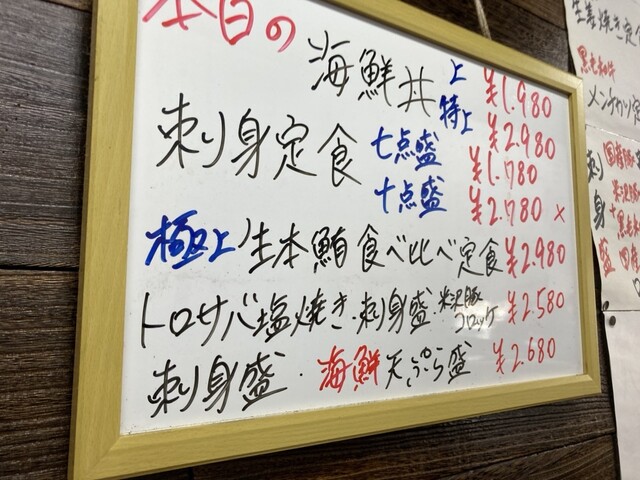 本日の
海鮮丼 上 ¥1.980
特上 ¥2.980
刺身定食 七点盛 ¥1.780
十点盛 ¥2.780 ×
極上 生本鮪食べ比べ定食 ¥2.980
トロサバ塩焼き・刺身盛・米沢豚コロッケ ¥2.580
刺身盛・海鮮天ぷら盛 ¥2.680
生姜焼き定食
黒毛和牛
メンチカツ定
国産豚
米沢豚
刺身盛